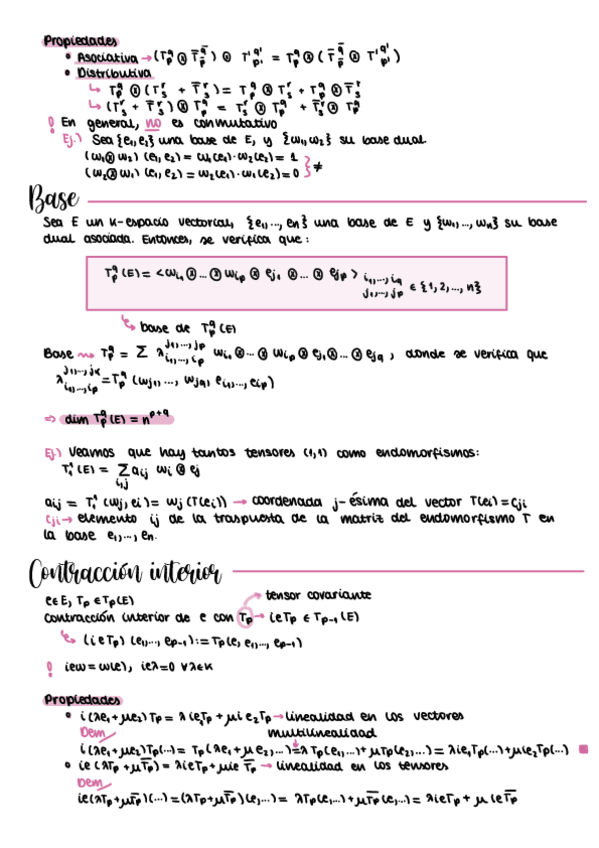 Propiedades
• Asociativa → (T_p^q ⊗ T̄_p̄^q̄) ⊗ T'_p'^q' = T_p^q ⊗ (T̄_p̄^q̄ ⊗ T'_p'^q')
• Distributiva
↳ T_p^q ⊗ (T_s^r + T̄_s^r) = T_p^q ⊗ T_s^r + T_p^q ⊗ T̄_s^r
↳ (T_s^r + T̄_s^r) ⊗ T_p^q = T_s^r ⊗ T_p^q + T̄_s^r ⊗ T_p^q
! En general, no es conmutativo
Ej.) Sea {e₁, e₂} una base de E, y {w₁, w₂} su base dual.
(w₁ ⊗ w₂) (e₁, e₂) = w₁(e₁)·w₂(e₂) = 1
(w₂ ⊗ w₁) (e₁, e₂) = w₂(e₁)·w₁(e₂) = 0 } ≠
Base
Sea E un K-espacio vectorial, {e₁, ..., eₙ} una base de E y {w₁, ..., wₙ} su base
dual asociada. Entonces, se verifica que:
T_p^q(E) = <w_i₁ ⊗ ... ⊗ w_ip ⊗ e_j₁ ⊗ ... ⊗ e_jp> i₁, ..., i_q j₁, ..., j_p ∈ {1, 2, ..., n}
↳ base de T_p^q(E)
Base ⇝ T_p^q = Σ λ_{i₁, ..., i_p}^{j₁, ..., j_p} w_i₁ ⊗ ... ⊗ w_ip ⊗ e_j₁ ⊗ ... ⊗ e_jq, donde se verifica que
λ_{i₁, ..., i_p}^{j₁, ..., j_k} = T_p^q (w_j₁, ..., w_jq, e_i₁, ..., e_ip)
⇒ dim T_p^q(E) = n^{p+q}
Ej.) Veamos que hay tantos tensores (1,1) como endomorfismos:
T₁¹(E) = Σ_{i,j} a_ij w_i ⊗ e_j
a_ij = T₁¹(w_j, e_i) = w_j(T(e_i)) → coordenada j-ésima del vector T(e_i) = c_ji
c_ji → elemento ij de la traspuesta de la matriz del endomorfismo T en
la base e₁, ..., eₙ.
Contracción interior
e ∈ E, T_p ∈ T_p(E) tensor covariante
Contracción interior de e con T_p → i_e T_p ∈ T_{p-1}(E)
↳ (i_e T_p) (e₁, ..., e_{p-1}) := T_p(e, e₁, ..., e_{p-1})
! i_e w = w(e), i_e λ = 0 ∀λ∈K
Propiedades
• i(λe₁ + μe₂) T_p = λ i_e₁ T_p + μ i_e₂ T_p → linealidad en los vectores
Dem/ multilinealidad
i(λe₁ + μe₂) T_p(...) = T_p(λe₁ + μe₂, ...) = λ T_p(e₁, ...) + μ T_p(e₂, ...) = λ i_e₁ T_p(...) + μ i_e₂ T_p(...) ■
• i_e (λT_p + μT̄_p) = λ i_e T_p + μ i_e T̄_p → linealidad en los tensores
Dem/
i_e(λT_p + μT̄_p)(...) = (λT_p + μT̄_p)(e, ...) = λT_p(e, ...) + μT̄_p(e, ...) = λ i_e T_p + μ i_e T̄_p